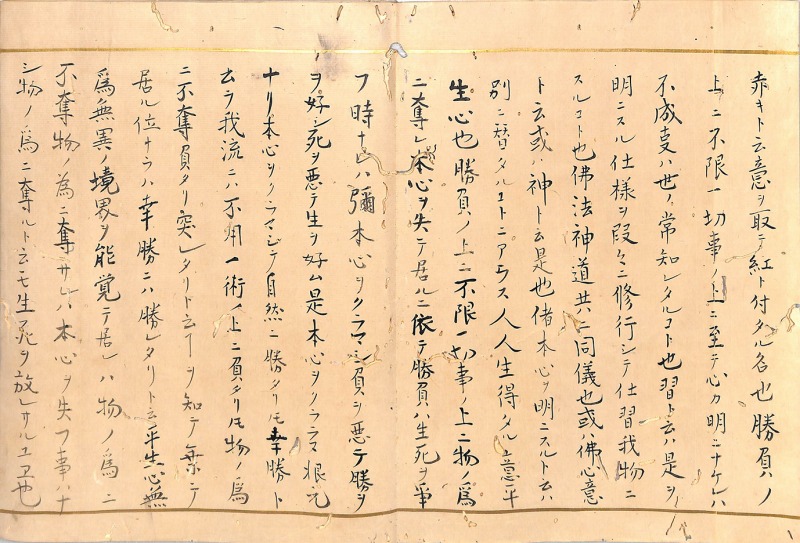 赤キト云意ヲ取テ紅ト付タル名也勝負ノ
上ニ不限一切事ノ上ニ至テ心カ明ニナケレハ
不成夏ハ世ノ常知レタルコト也習ト云ハ是ヲ
明ニスル仕様ヲ段々ニ修行シテ仕習我物ニ
スルコト也佛法神道共ニ同儀也或ハ佛心意
ト云或ハ神ト云是也偖本心ヲ明ニスルト云ハ
別ニ替タルコトニアラス人人生得タル意平
生心也勝負ノ上ニ不限一切事ノ上ニ物ノ為
ニ奪レ本心ヲ失テ居ルニ依テ勝負ハ生死ヲ爭
フ時ナレハ彌本心ヲクラマシ負ヲ悪テ勝ヲ
ヲ好シ死ヲ悪テ生ヲ好ム是本心ヲクラマス根元
ナリ本心ヲクラマシテ自然ニ勝タリモ幸勝ト
云ラ我流ニハ不用一術ノ上ニ負タリモ物ノ為
ニ不奪負タリ突レタリト云ヿヲ知テ棄テ
居ル位ナラハ幸勝ニハ勝レタリト云平生心無
為無異ノ境界ヲ能覚テ居レハ物ノ為ニ
不奪物ノ為ニ奪サレハ本心ヲ失フ事ハナ
シ物ノ為ニ奪ルト云モ生死ヲ放レサルユヱ也